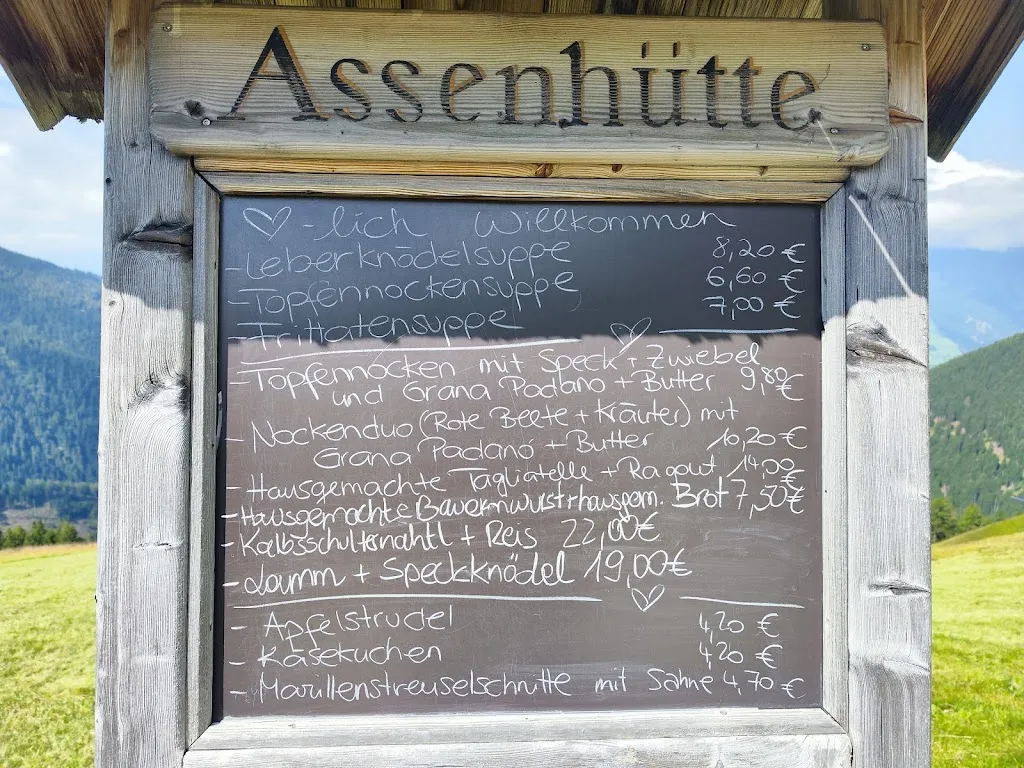 Assenhütte
♡-lich Willkommen
- Leberknödelsuppe 8,20 €
- Topfennockensuppe 6,60 €
- Frittatensuppe 7,00 €
- Topfennocken mit Speck + Zwiebel
und Grana Padano + Butter 9,80 €
- Nockenduo (Rote Beete + Kräuter) mit
Grana Padano + Butter 10,20 €
- Hausgemachte Tagliatelle + Ragout 14,00 €
- Hausgemachte Bauernwurst + hausgem. Brot 7,50 €
- Kalbsschulternahtl + Reis 22,00 €
- Lamm + Speckknödel 19,00 €
- Apfelstrudel 4,20 €
- Käsekuchen 4,20 €
- Marillenstreuselschnitte mit Sahne 4,70 €